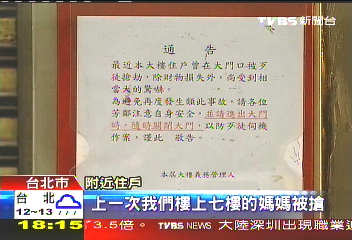 TVBS新聞台
通告
最近本大樓住戶曾在大門口被歹
徒搶劫，除財物損失外，尚受到相
當大的驚嚇。
為避免再度發生類此事故，請各位
芳鄰注意自身安全，並請進出大門
時，隨時關閉大門，以防歹徒伺機
作案，謹此　敬告。
本居大樓義務管理人
台北市
附近住戶
台北
12~13
上一次我們樓上七樓的媽媽被搶
18:15
73.5倍。
TVBS NEWS
大陸深圳出現職業